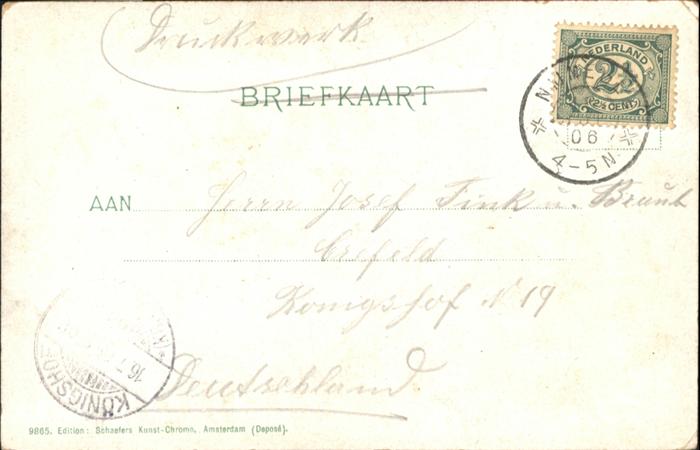 Druckwerk
BRIEFKAART
NEDERLAND
2½
2½ CENT
06
4-5N
AAN Herrn Josef Fink u. Braut
Crefeld
Königshof N 19
Deutschland
KÖNIGSHOF
16.7
9865. Edition: Schaefers Kunst-Chromo, Amsterdam (Deposé).